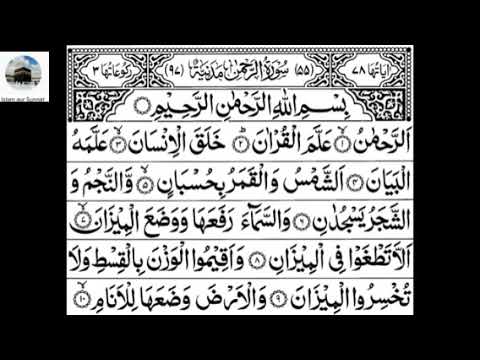 Islam aur Sunnat
اٰيَاتُهَا ٧٨ (٥٥) سُوْرَةُ الرَّحْمٰنِ مَدَنِيَّةٌ (٩٧) رُكُوْعَاتُهَا ٣
بِسْمِ اللّٰهِ الرَّحْمٰنِ الرَّحِيْمِ
اَلرَّحْمٰنُ ۝١ عَلَّمَ الْقُرْاٰنَ ۝٢ خَلَقَ الْاِنْسَانَ ۝٣ عَلَّمَهُ
الْبَيَانَ ۝٤ اَلشَّمْسُ وَالْقَمَرُ بِحُسْبَانٍ ۝٥ وَّالنَّجْمُ وَ
الشَّجَرُ يَسْجُدٰنِ ۝٦ وَالسَّمَآءَ رَفَعَهَا وَوَضَعَ الْمِيْزَانَ ۝٧
اَلَّا تَطْغَوْا فِى الْمِيْزَانِ ۝٨ وَاَقِيْمُوا الْوَزْنَ بِالْقِسْطِ وَلَا
تُخْسِرُوا الْمِيْزَانَ ۝٩ وَالْاَرْضَ وَضَعَهَا لِلْاَنَامِ ۝١٠